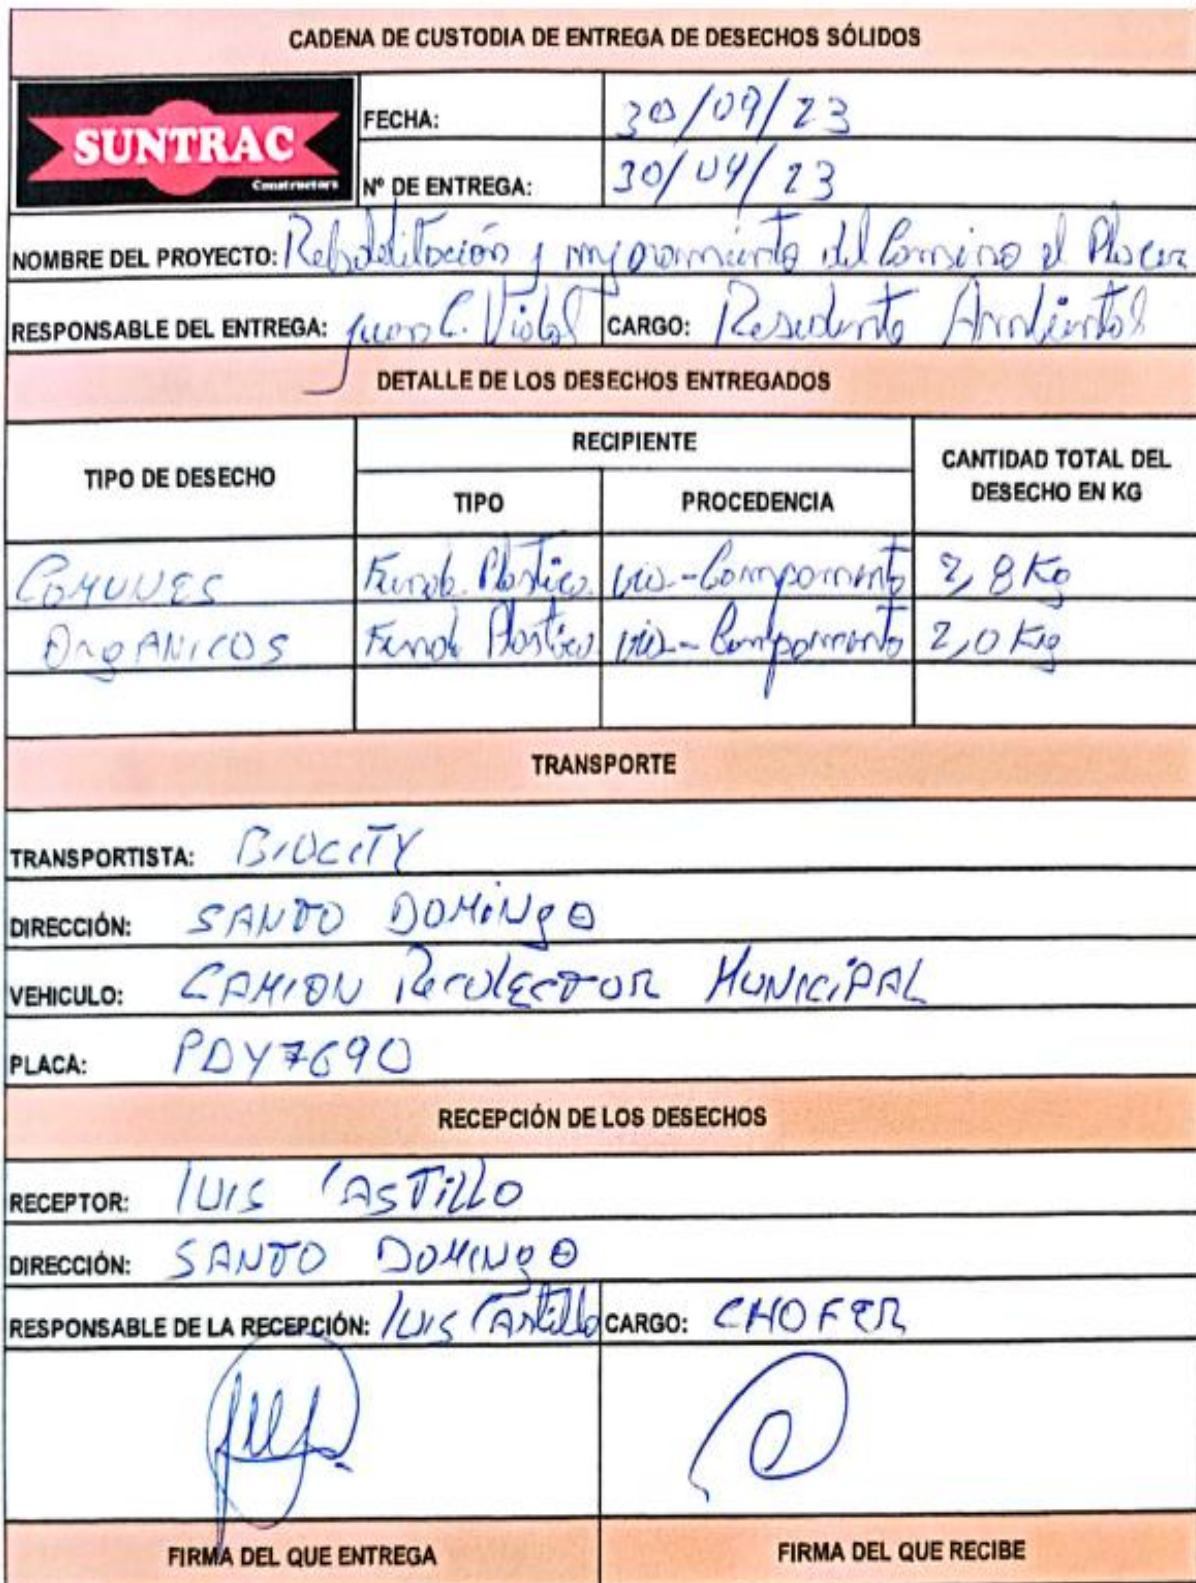 CADENA DE CUSTODIA DE ENTREGA DE DESECHOS SÓLIDOS
SUNTRAC
Constructors
FECHA: 30/09/23
Nº DE ENTREGA: 30/04/23
NOMBRE DEL PROYECTO: Rehabilitación y mejoramiento del Camino el Placer
RESPONSABLE DEL ENTREGA: Juan C. Vidal CARGO: Residente Ambiental
DETALLE DE LOS DESECHOS ENTREGADOS
TIPO DE DESECHO RECIPIENTE CANTIDAD TOTAL DEL DESECHO EN KG
TIPO PROCEDENCIA
COMUNES Funda Plastica vía-Campamento 2,8 Kg
ORgANICOS Funda Plastica vía-Campamento 2,0 Kg
TRANSPORTE
TRANSPORTISTA: BIOCITY
DIRECCIÓN: SANTO DOMINgO
VEHICULO: CAMION RecOlecTOR MUNICIPAL
PLACA: PDY7690
RECEPCIÓN DE LOS DESECHOS
RECEPTOR: LUIS CASTillO
DIRECCIÓN: SANTO DOMINgO
RESPONSABLE DE LA RECEPCIÓN: LUIS Castillo CARGO: CHOFER
FIRMA DEL QUE ENTREGA FIRMA DEL QUE RECIBE